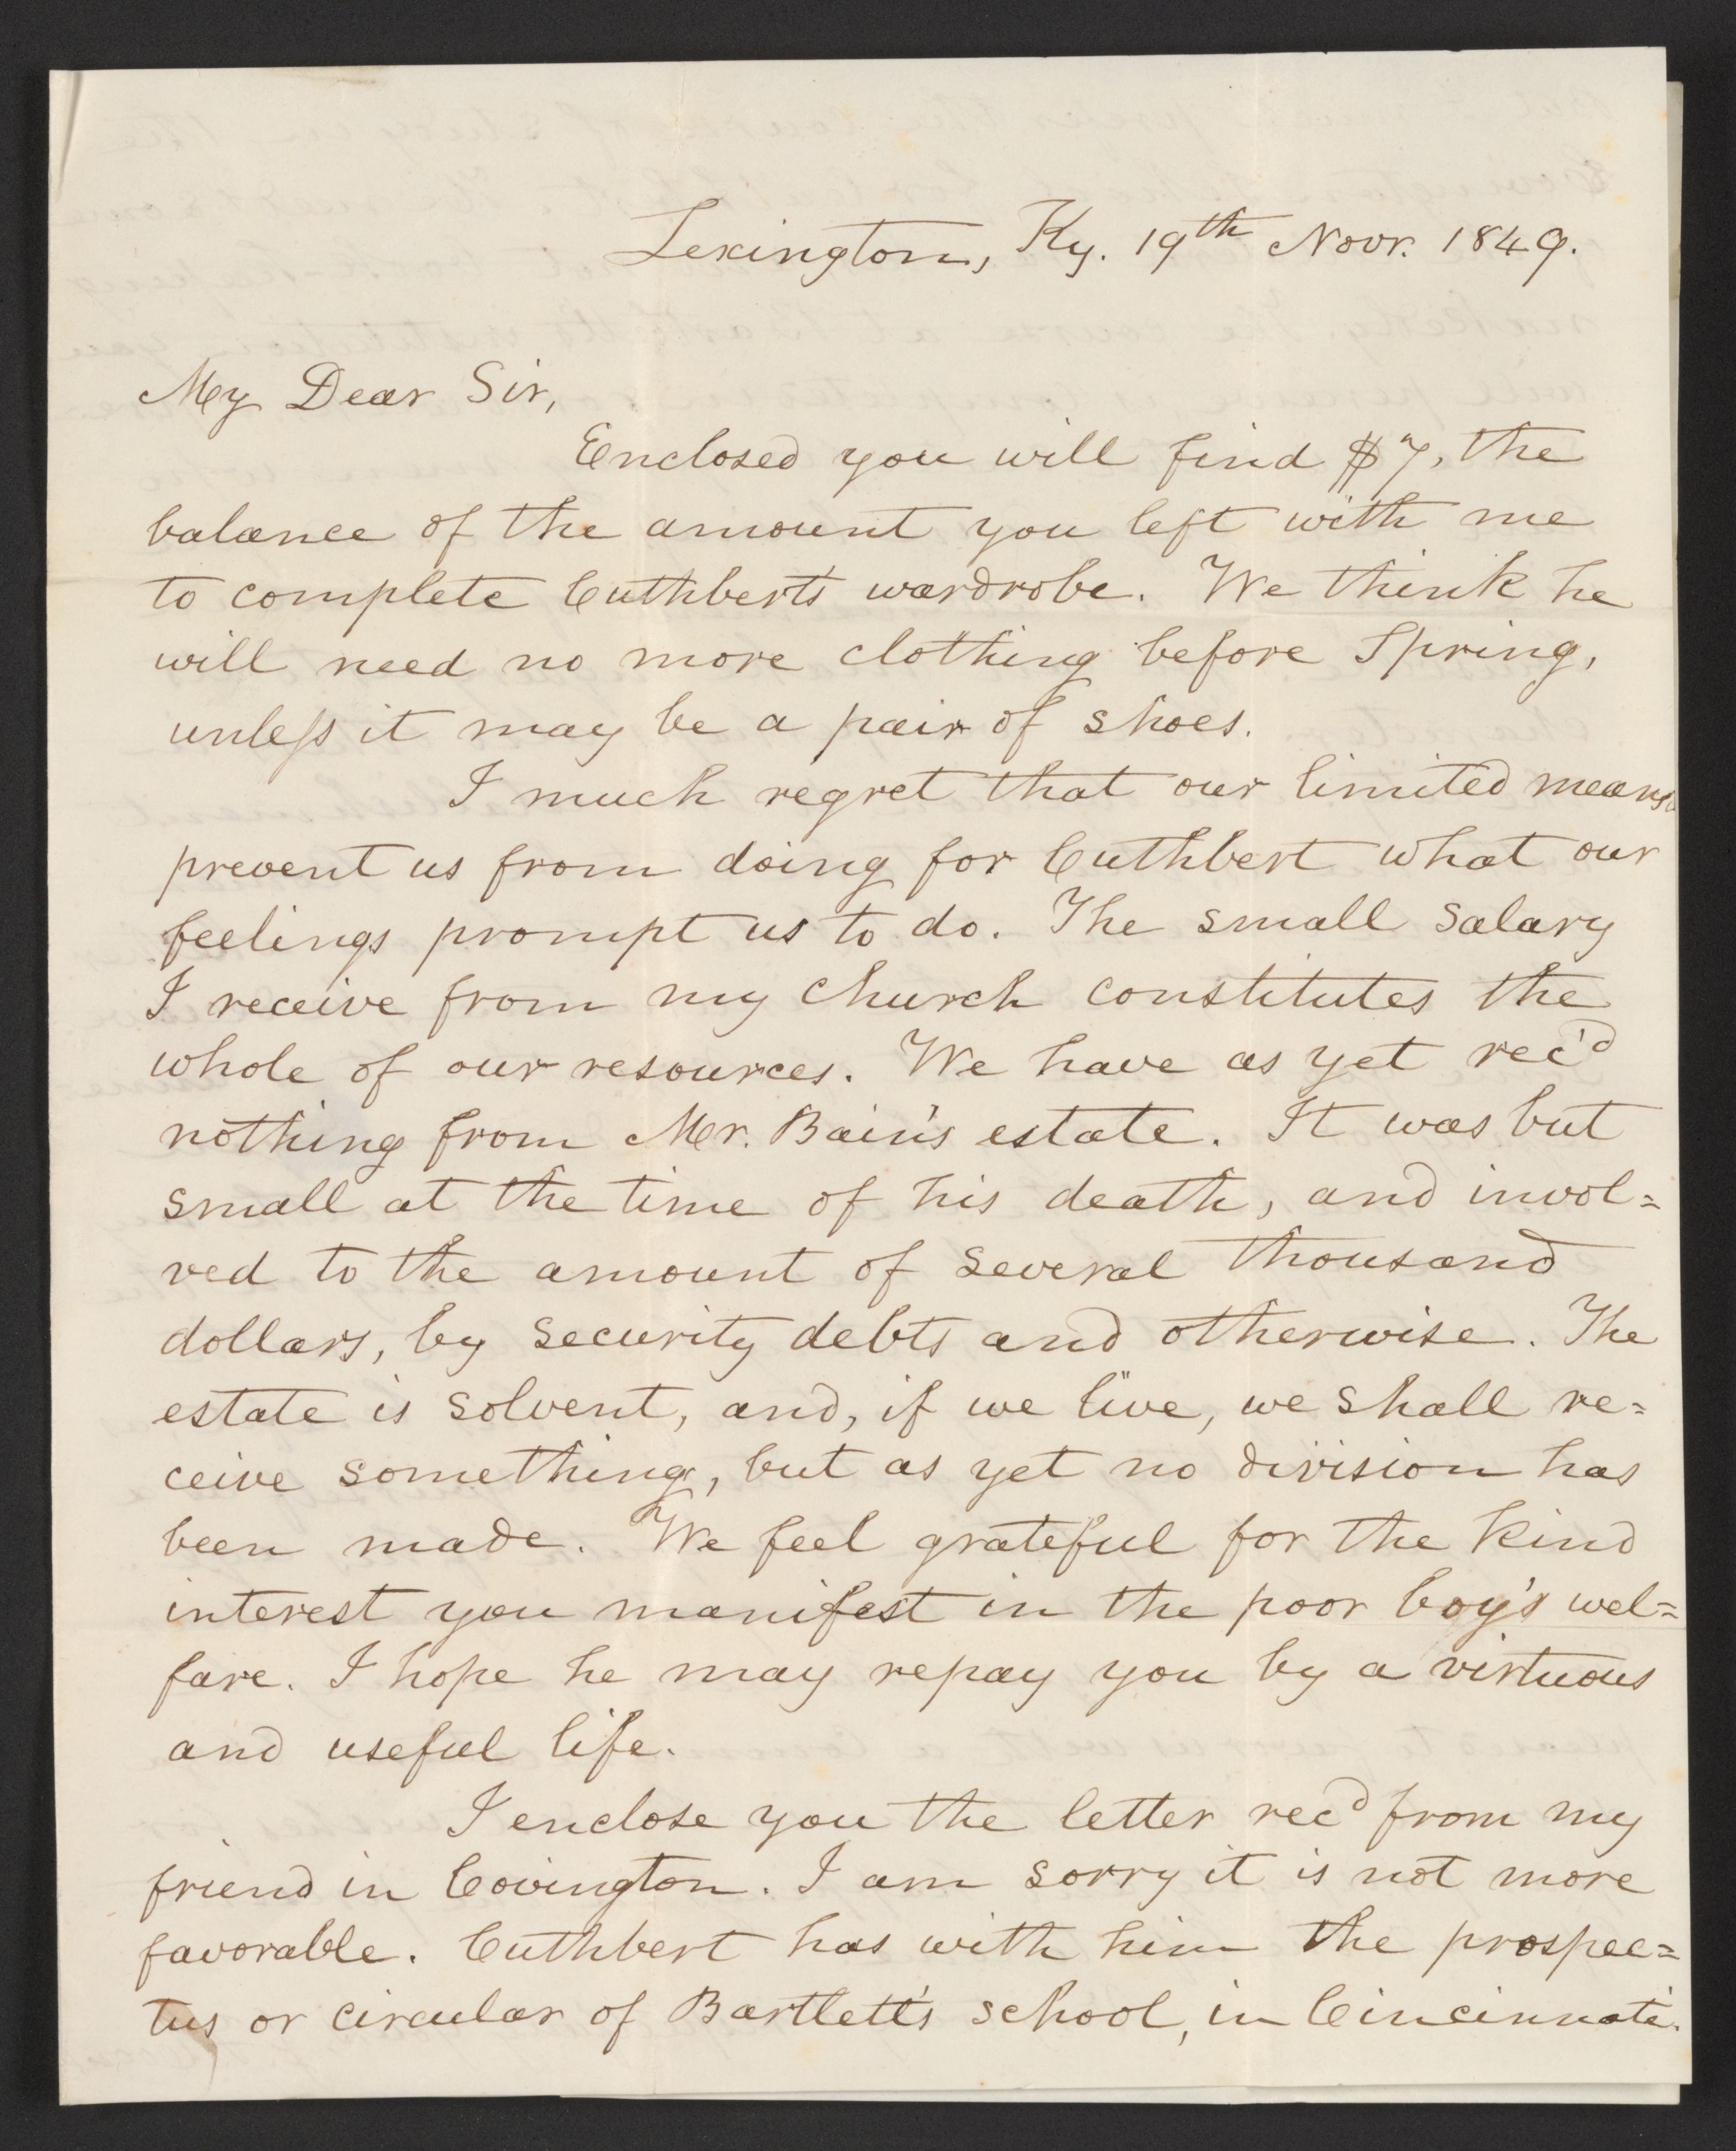 Lexington, Ky. 19th Novr. 1849.
My Dear Sir,
Enclosed you will find $7, the
balance of the amount you left with me
to complete Cuthbert's wardrobe. We think he
will need no more clothing before Spring,
unless it may be a pair of shoes.
I much regret that our limited means
prevent us from doing for Cuthbert what our
feelings prompt us to do. The small salary
I receive from my church constitutes the
whole of our resources. We have as yet rec'd
nothing from Mr. Bain's estate. It was but
small at the time of his death, and invol=
ved to the amount of several thousand
dollars, by security debts and otherwise. The
estate is solvent, and, if we live, we shall re=
ceive something, but as yet no division has
been made. We feel grateful for the kind
interest you manifest in the poor boy's wel=
fare. I hope he may repay you by a virtuous
and useful life.
I enclose you the letter recd from my
friend in Covington. I am sorry it is not more
favorable. Cuthbert has with him the prospec=
tus or circular of Bartlett's school, in Cincinnati.